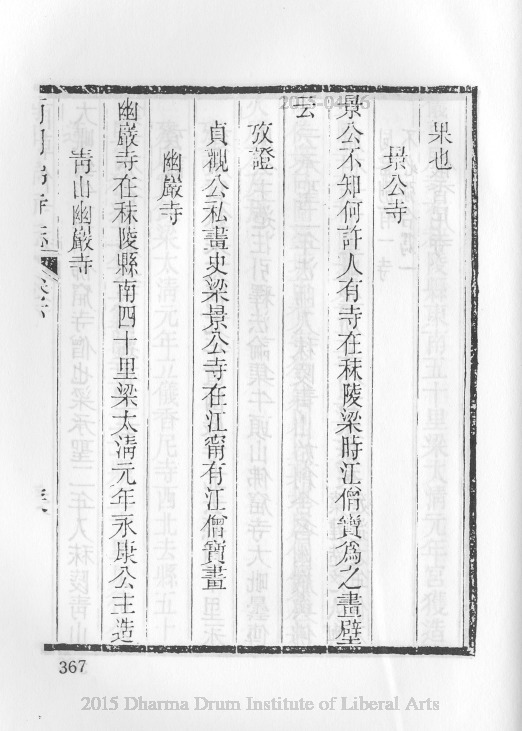 果也
景公寺
景公不知何許人有寺在秣陵梁時江僧寶爲之畫壁
云
攷證
貞觀公私畫史梁景公寺在江甯有江僧寶畫
幽巖寺
幽巖寺在秣陵縣南四十里梁太淸元年永康公主造
靑山幽巖寺
367
2015 Dharma Drum Institute of Liberal Arts